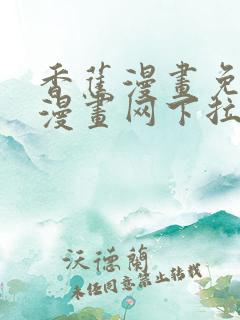 香蕉漫畫免
漫畫网下拉
沃德蘭
未经同意禁止转载